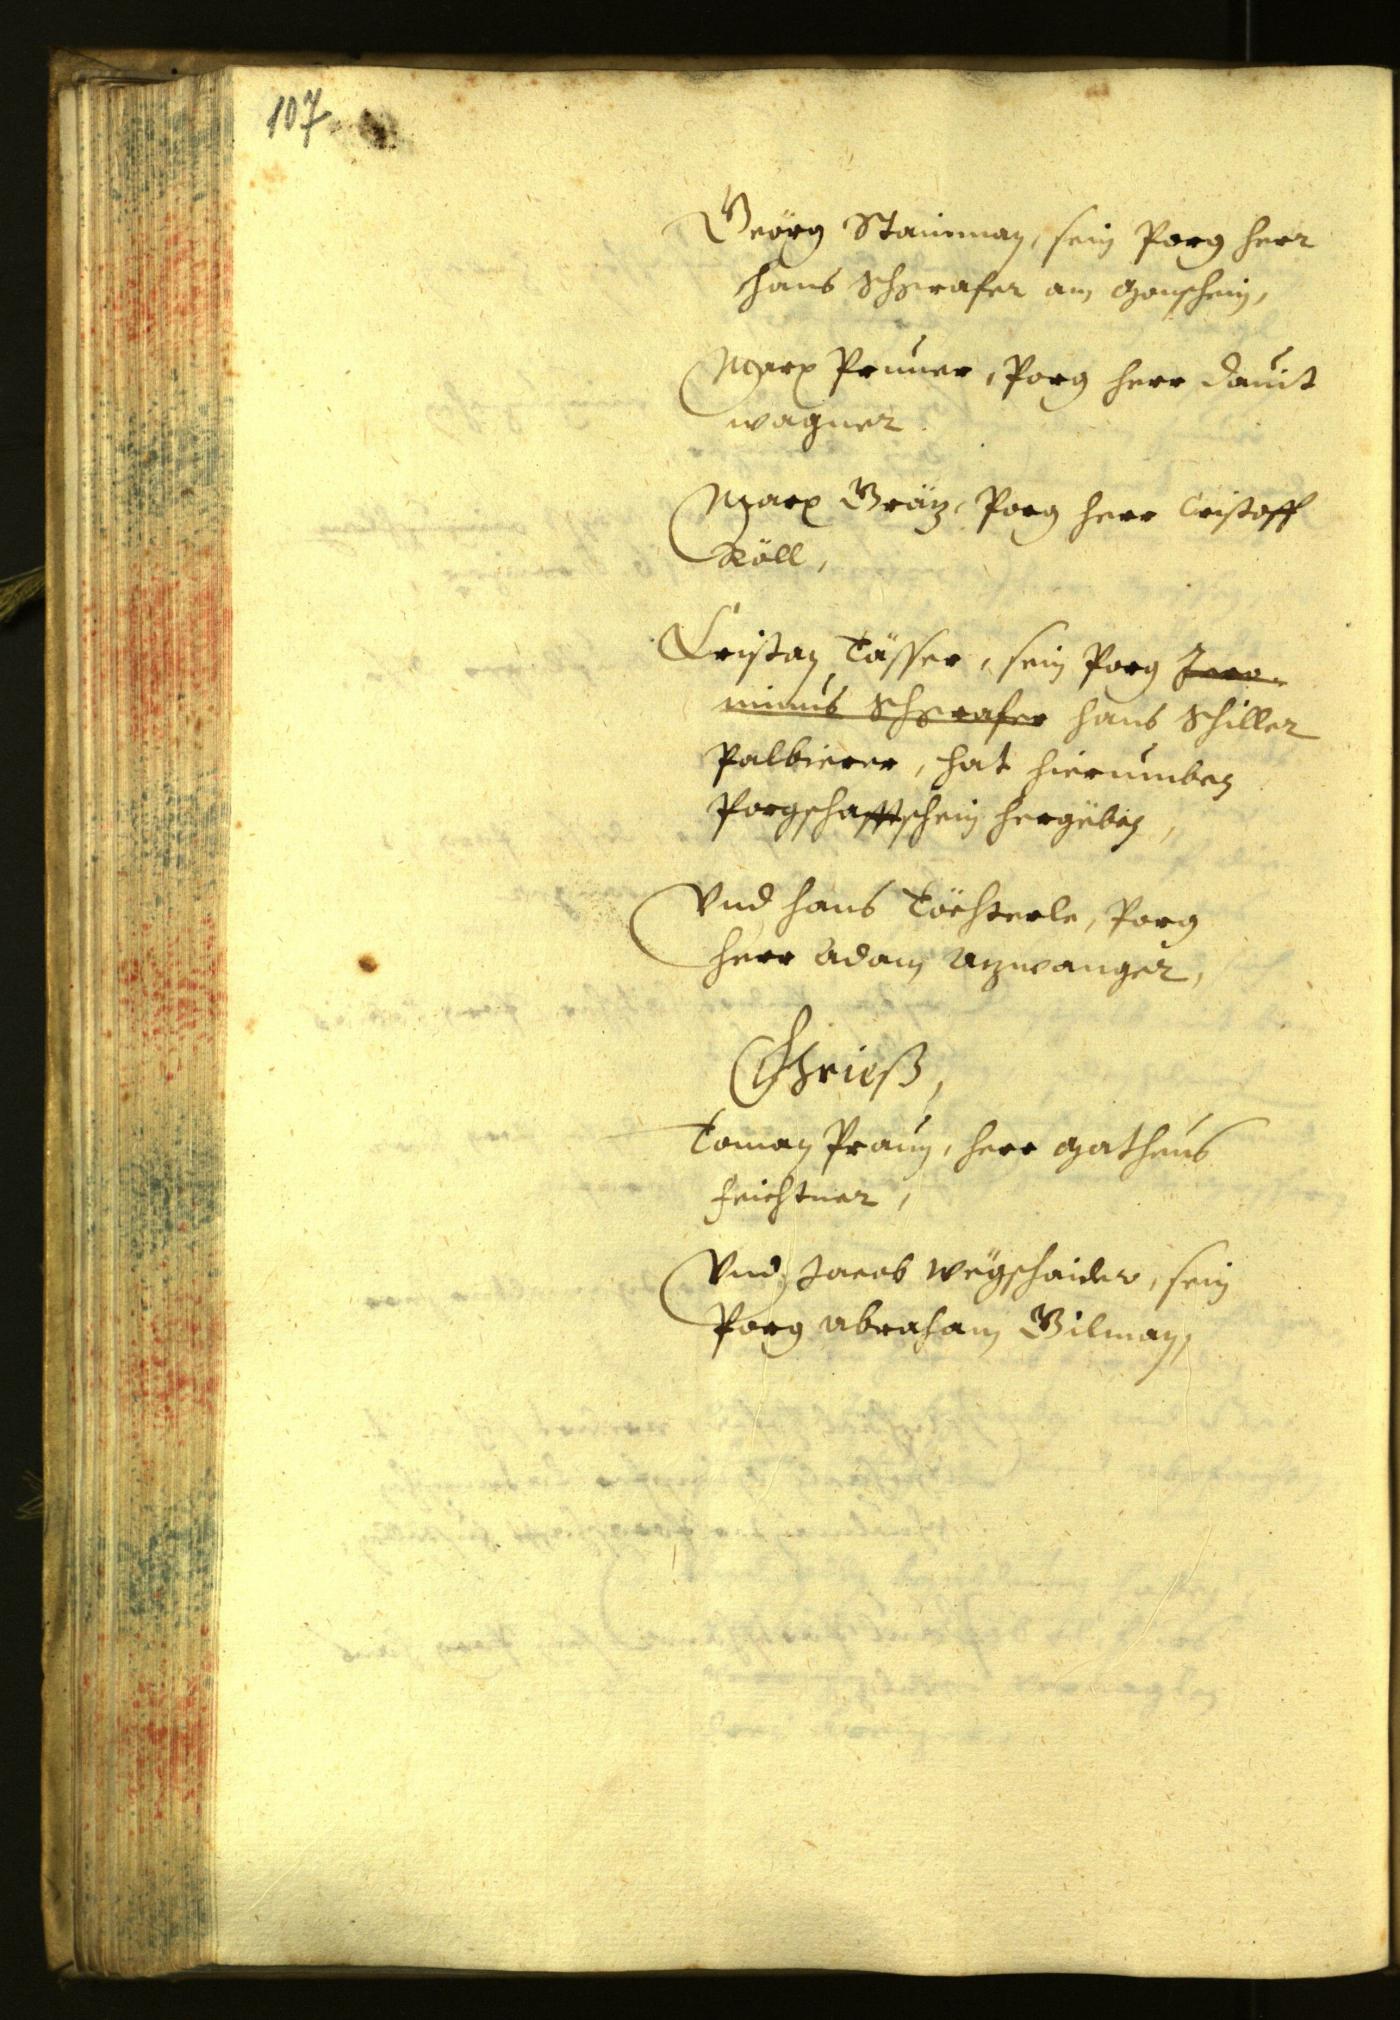 107
Geörg Stainman, sein Porg herr
Hans Schgrafer am Gonschein,
Marx Pruner, Porg herr Dauit
wagner
Marx Gräz, Porg herr Cristoff
Röll,
Cristan Tässer, sein Porg Jero-
nimus Schgrafer hans Schiller
Palbierer, hat hierumben
Porgschafftschein hergëben,
Vnd hans Töchterle, Porg
herr Adam Azwanger,
Grieß,
Toman Praun, herr Matheus
Feichtner,
Vnd Jacob Wëgschaider, sein
Porg Abraham Gilman,